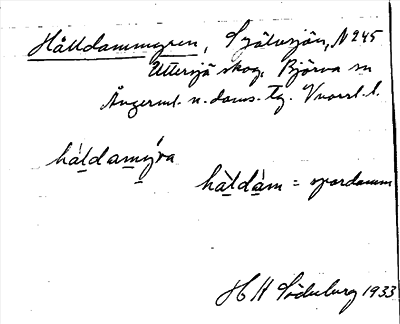 Hålldammyren, Självsjön, N 245
Uttersjö skog, Björna sn
Ångerml. n. doms. tg. Vnorrl. l.
håldamýra
hàldàm = spardamm
H H Söderberg 1933